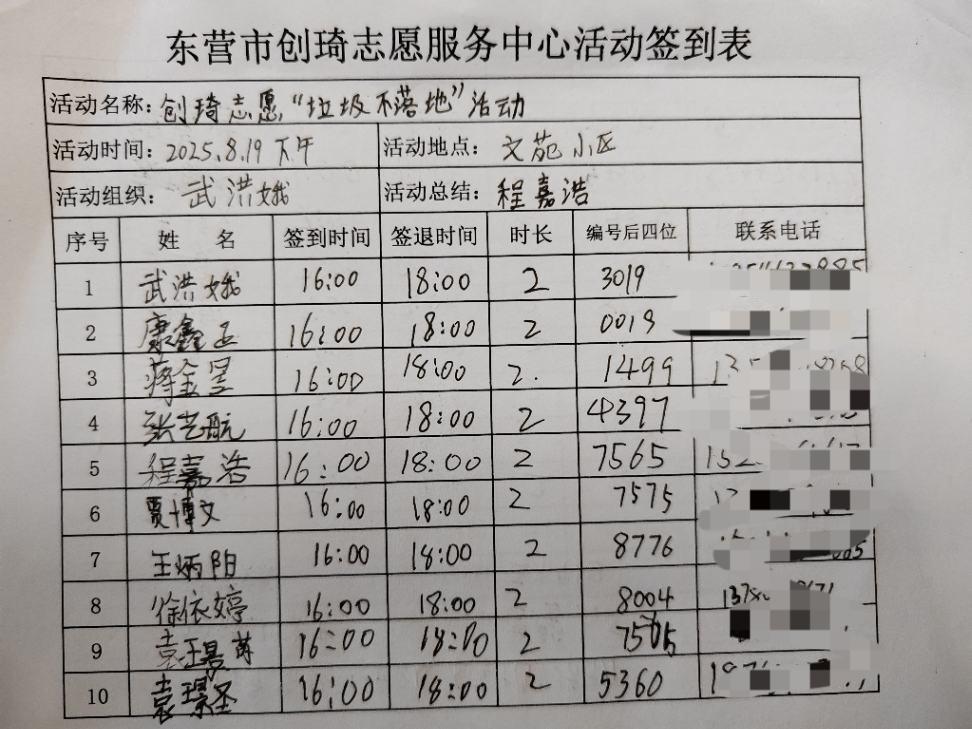 东营市创琦志愿服务中心活动签到表
活动名称：创琦志愿"垃圾不落地"活动
活动时间：2025.8.19 下午 活动地点：文苑小区
活动组织：武洪娥 活动总结：程嘉浩
序号 姓 名 签到时间 签退时间 时长 编号后四位 联系电话
1 武洪娥 16:00 18:00 2 3019
2 康鑫 16:00 18:00 2 0019
3 蒋金昱 16:00 18:00 2. 1499
4 张艺航 16:00 18:00 2 4397
5 程嘉浩 16:00 18:00 2 7565
6 贾博文 16:00 18:00 2 7575
7 王炳阳 16:00 18:00 2 8776
8 徐依婷 16:00 18:00 2 8004
9 袁 16:00 18:00 2
10 袁璟圣 16:00 18:00 2 5360